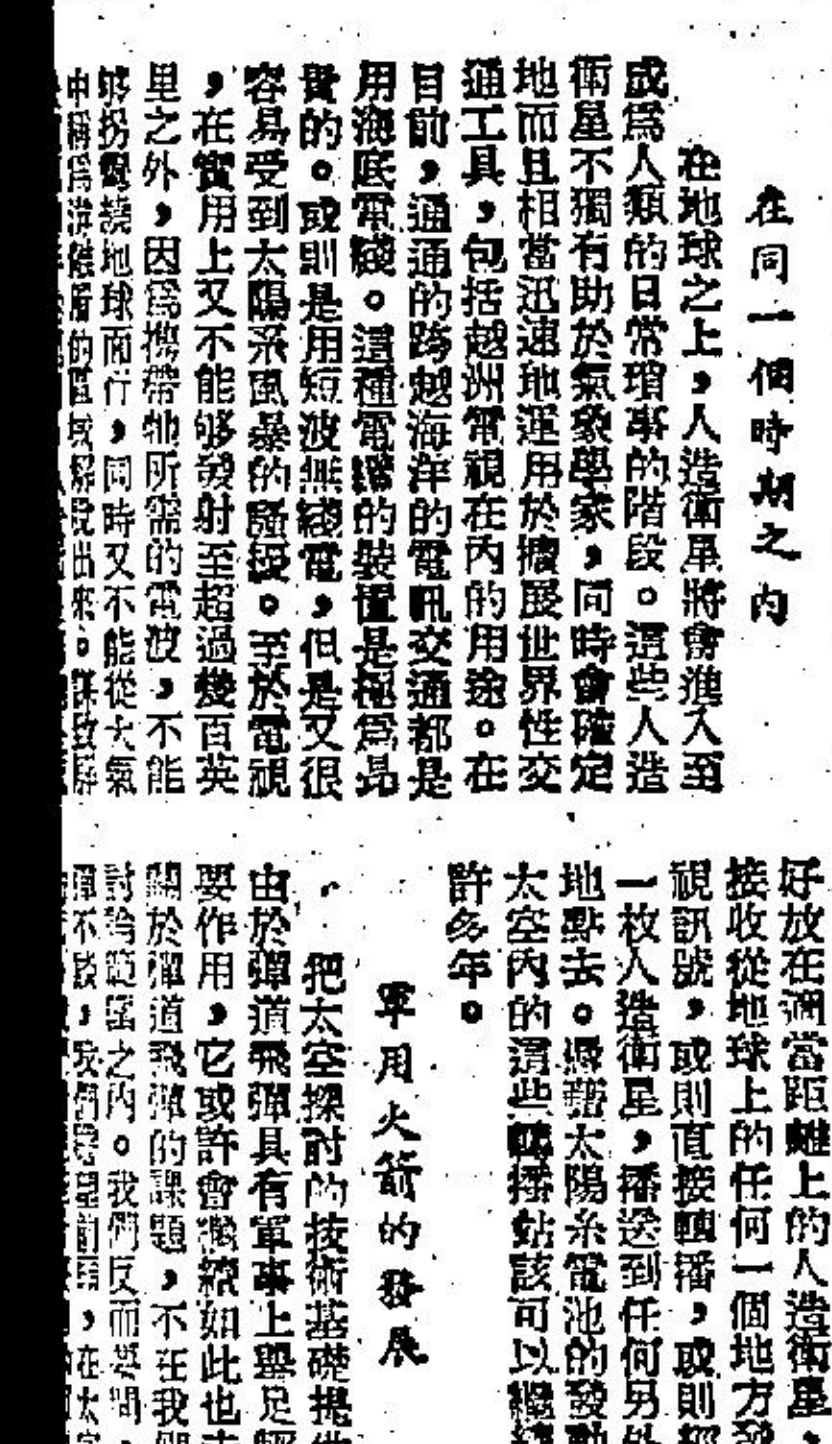 在同一個時期之內
在地球之上，人造衛星將會進入至
成爲人類的日常瑣事的階段。這些人造
衛星不獨有助於氣象學家，同時會確定
地而且相當迅速地運用於擴展世界性交
通工具，包括越洲電視在內的用途。在
目前，通通的跨越海洋的電訊交通都是
用海底電纜。這種電纜的裝置是極爲昂
貴的。或則是用短波無綫電，但是又很
容易受到太陽系風暴的騷擾。至於電視
，在實用上又不能够發射至超過幾百英
里之外，因爲攜帶牠所需的電波，不能
够拐彎繞地球而行，同時又不能從大氣
中稱爲 的區域解說出來。
好放在適當距離上的人造衛星，
接收從地球上的任何一個地方發
視訊號，或則直接轉播，或則經
一枚人造衛星，播送到任何另外
地點去。憑藉太陽系電池的發動
太空內的這些轉播站該可以繼續
許多年。
軍用火箭的發展
把太空探討的技術基礎提供
由於彈道飛彈具有軍事上舉足輕
要作用，它或許會繼續如此也未
關於彈道飛彈的課題，不在我們
討論範圍之內。我們反而要問，
彈不談，我們 望前 ，在太空